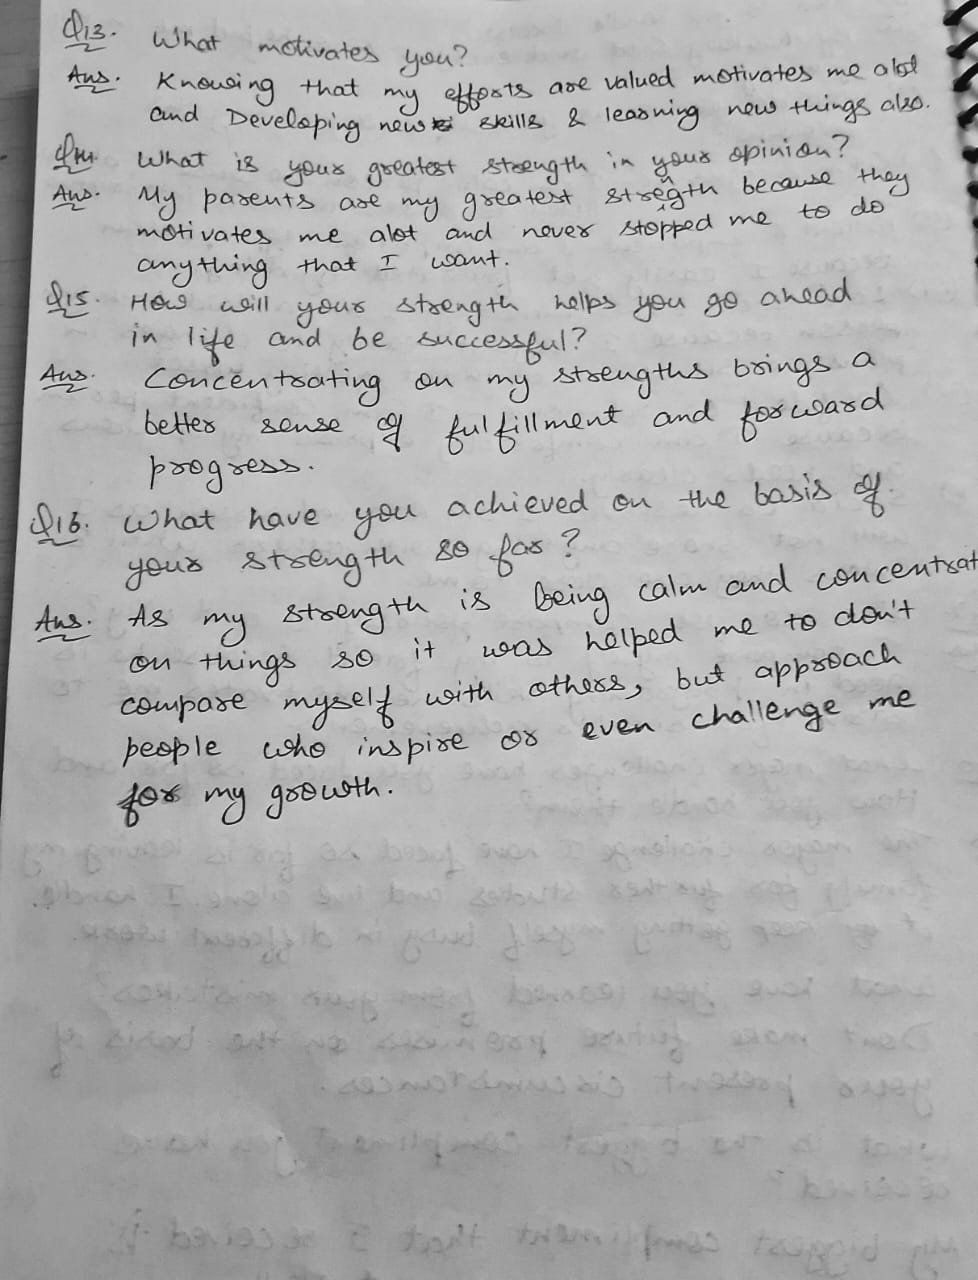 Q13. What motivates you?
Ans. Knowing that my efforts are valued motivates me alot
and Developing new skills & learning new things also.
Q14 What is your greatest strength in your opinion?
Ans. My parents are my greatest strength because they
motivates me alot and never stopped me to do
anything that I want.
Q15. How will your strength helps you go ahead
in life and be successful?
Ans. Concentrating on my strengths brings a
better sense of fulfillment and forward
progress.
Q16. What have you achieved on the basis of
your strength so far?
Ans. As my strength is being calm and concentrat
on things so it was helped me to don't
compare myself with others, but approach
people who inspire or even challenge me
for my growth.